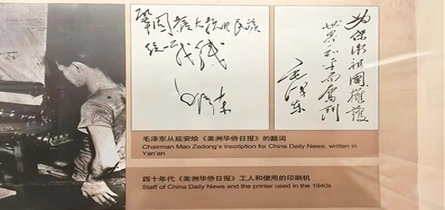 鞏固擴大抗日民族
統一戰線
毛澤東
为保衛祖國擁護
世界和平而奮鬥
毛澤東
毛泽东从延安给《美洲华侨日报》的题词
Chairman Mao Zedong's inscription for China Daily News, written in
Yan'an
四十年代《美洲华侨日报》工人和使用的印刷机
Staff of China Daily News and the printer used in the 1940s